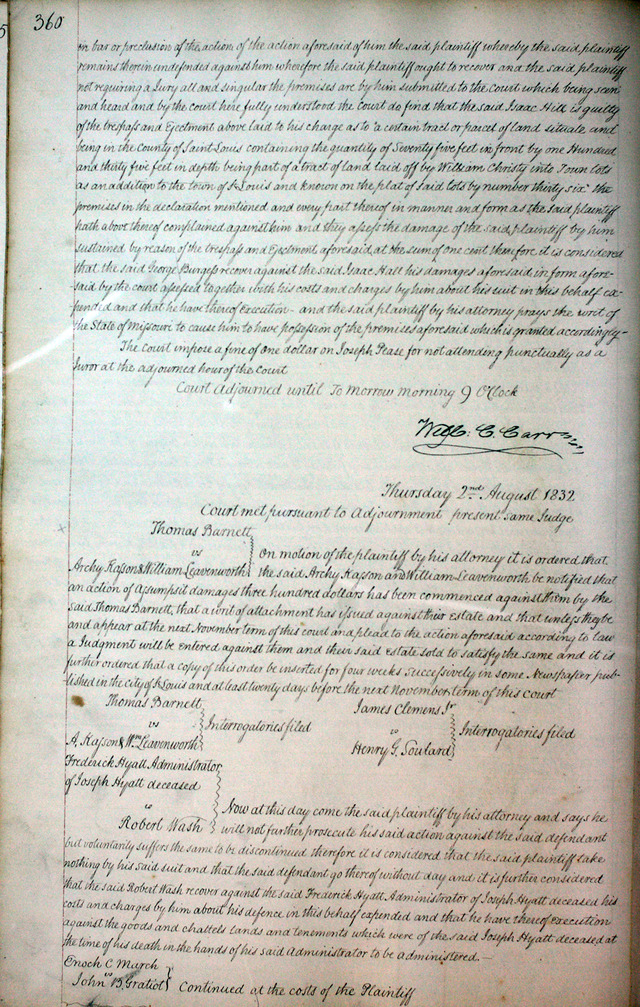 360
5
in bar or preclusion of the action of the action aforesaid of him the said plaintiff whereby the said plaintiff
remains therein undefended against him wherefore the said plaintiff ought to recover and the said plaintiff
not requiring a Jury all and singular the premises are by him submitted to the court which being seen
and heard and by the court here fully understood the Court do find that the said Isaac Hill is guilty
of the trespass and Ejectment above laid to his charge as to a certain tract or parcel of land situate and
being in the County of Saint Louis containing the quantity of Seventy five feet in front by one Hundred
and thirty five feet in depth being part of a tract of land laid off by William Christy into Town lots
as an addition to the town of St Louis and known on the plat of said lots by number thirty six the
premises in the declaration mentioned and every part thereof in manner and form as the said plaintiff
hath above thereof complained against him and they assess the damage of the said plaintiff by him
sustained by reason of the trespass and Ejectment aforesaid, at the sum of one cent therefore it is considered
that the said George Burgess recover against the said Isaac Hall his damages aforesaid in form afore-
said by the court assessed together with his costs and charges by him about his suit in this behalf ex-
pended and that he have thereof Execution - and the said plaintiff by his attorney prays the writ of
the State of Missouri to cause him to have possession of the premises aforesaid which is granted accordingly -
The Court impose a fine of one dollar on Joseph Pease for not attending punctually as a
Juror at the adjourned hour of the Court
Court Adjourned until To Morrow morning 9 O'Clock
Wm. C. Carr
Thursday 2nd August 1832
Court met pursuant to Adjournment present same Judge
Thomas Barnett
vs
Archy Kasson & William Leavenworth
On motion of the plaintiff by his attorney it is ordered that
the said Archy Kasson and William Leavenworth be notified that
an action of Assumpsit damages three hundred dollars has been commenced against them by the
said Thomas Barnett, that a writ of attachment has issued against their Estate and that unless they be
and appear at the next November term of this court and plead to the action aforesaid according to law
a Judgment will be entered against them and their said Estate sold to satisfy the same and it is
further ordered that a copy of this order be inserted for four weeks successively in some Newspaper pub-
lished in the city of St Louis and at least twenty days before the next November term of this court
Thomas Barnett
vs
A. Kasson & Wm Leavenworth
Interrogatories filed
James Clemens Jr
vs
Henry G. Soulard
Interrogatories filed
Frederick Hyatt Administrator
of Joseph Hyatt deceased
vs
Robert Wash
Now at this day come the said plaintiff by his attorney and says he
will not further prosecute his said action against the said defendant
but voluntarily suffers the same to be discontinued therefore it is considered that the said plaintiff take
nothing by his said suit and that the said defendant go thereof without day and it is further considered
that the said Robert Wash recover against the said Frederick Hyatt Administrator of Joseph Hyatt deceased his
costs and charges by him about his defence in this behalf expended and that he have thereof execution
against the goods and chattels lands and tenements which were of the said Joseph Hyatt deceased at
the time of his death in the hands of his said Administrator to be administered. -
Enoch C March
vs
John B. Gratiot
Continued at the costs of the Plaintiff